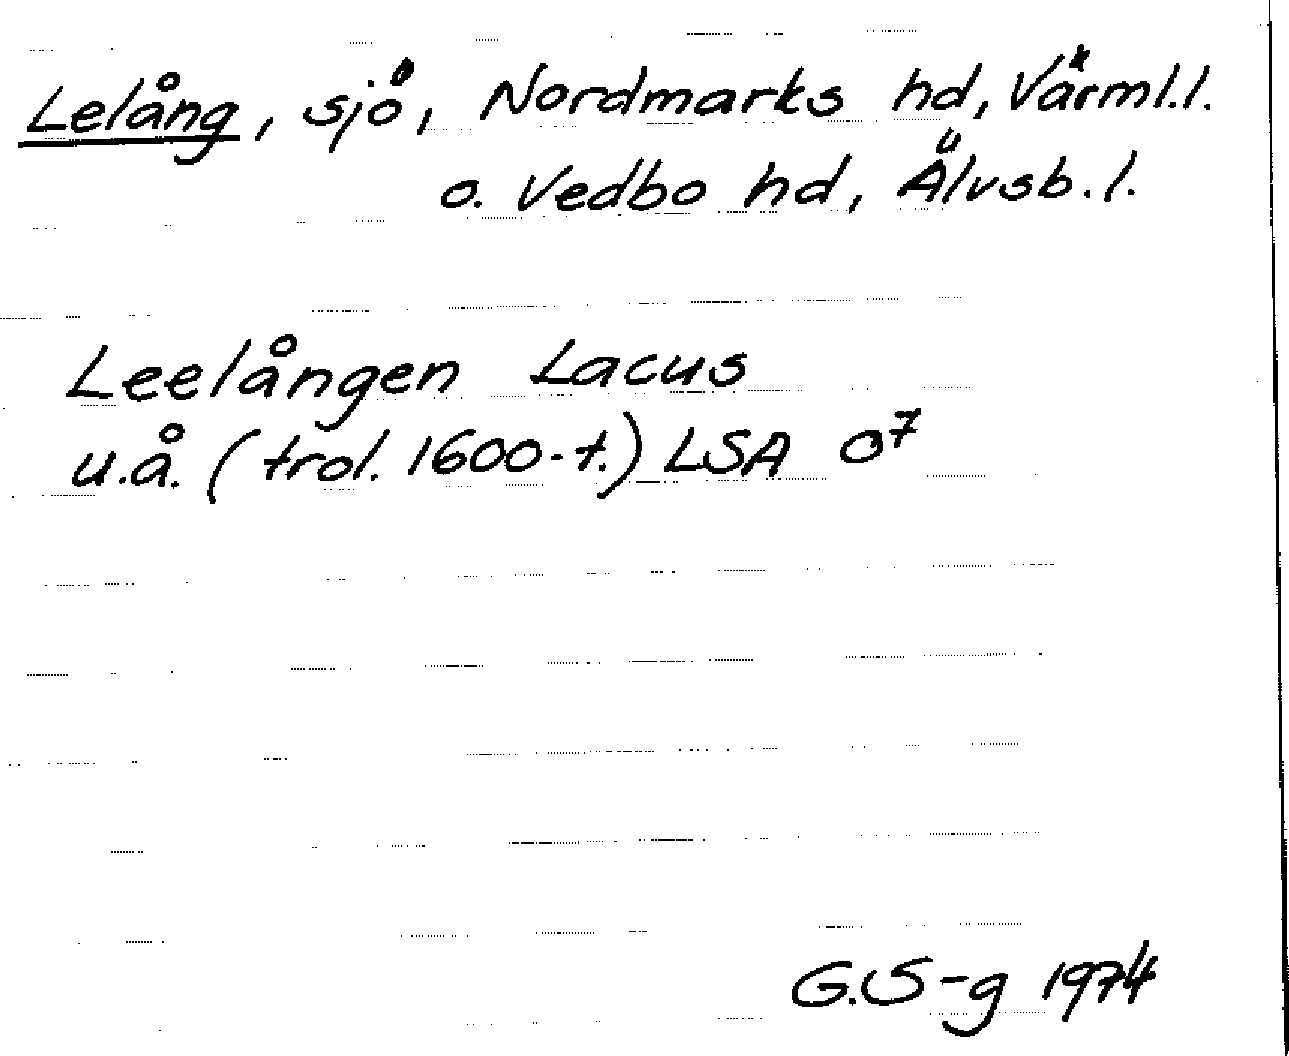 Lelång, sjö, Nordmarks hd, Värml.l.
o. Vedbo hd, Älvsb.l.
Leelången Lacus
u.å. (trol. 1600-t.) LSA O⁷
G.S-g 1974